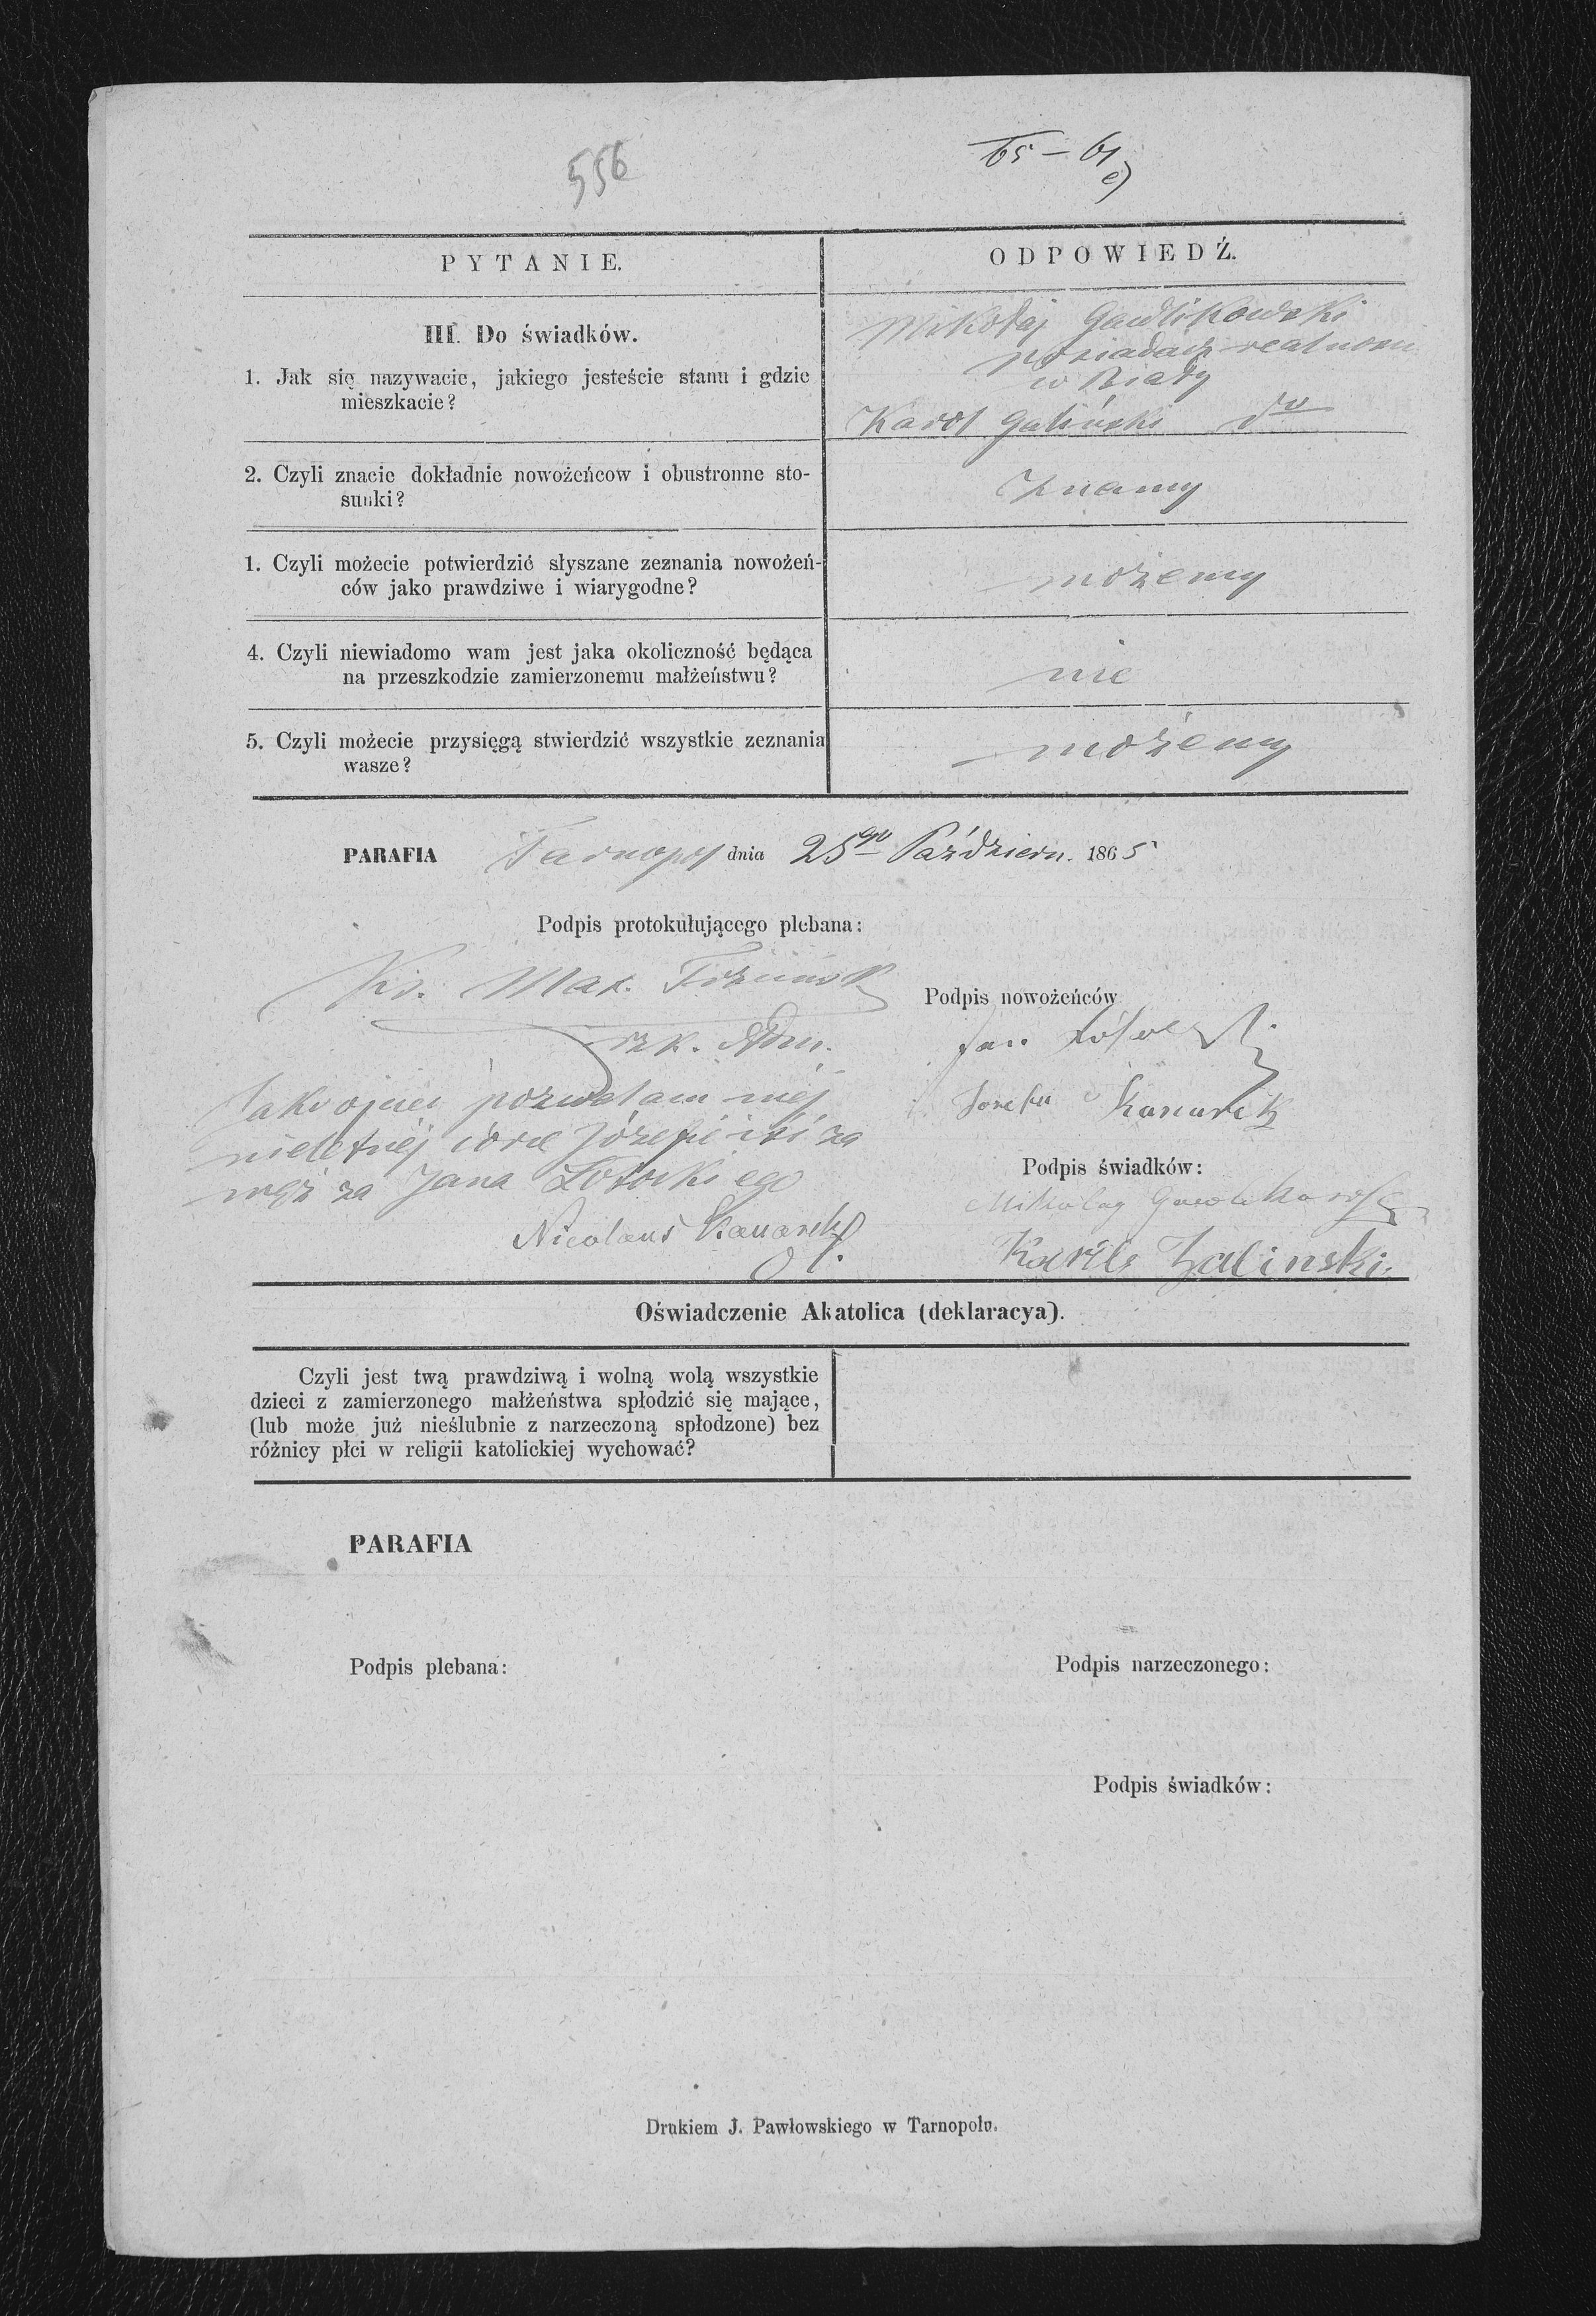 556
65 – 61
e)
PYTANIE.
ODPOWIEDŹ.
III. Do świadków.
1. Jak się nazywacie, jakiego jesteście stanu i gdzie
mieszkacie?
Mikołaj Gawlikowski
posiadacz realności
w Biały
Karol Galiński dto
2. Czyli znacie dokładnie nowożeńcow i obustronne sto-
sunki?
Znamy
1. Czyli możecie potwierdzić słyszane zeznania nowożeń-
ców jako prawdziwe i wiarygodne?
możemy
4. Czyli niewiadomo wam jest jaka okoliczność będąca
na przeszkodzie zamierzonemu małżeństwu?
nie
5. Czyli możecie przysięgą stwierdzić wszystkie zeznania
wasze?
możemy
PARAFIA Tarnopol dnia 25go Październ. 1865
Podpis protokułującego plebana:
Ks. Max.
rzk. Adm.
Podpis nowożeńców
Jan
Józefa Kanarek
Jako ojciec pozwalam mej
nieletniej córce Józefie iść za
mąż za Jana Łotockiego
Nicolaus Kanarek
Podpis świadków:
Mikolay
Karile Zalinski.
Oświadczenie Akatolica (deklaracya).
Czyli jest twą prawdziwą i wolną wolą wszystkie
dzieci z zamierzonego małżeństwa spłodzić się mające,
(lub może już nieślubnie z narzeczoną spłodzone) bez
różnicy płci w religii katolickiej wychować?
PARAFIA
Podpis plebana:
Podpis narzeczonego:
Podpis świadków:
Drukiem J. Pawłowskiego w Tarnopolu.